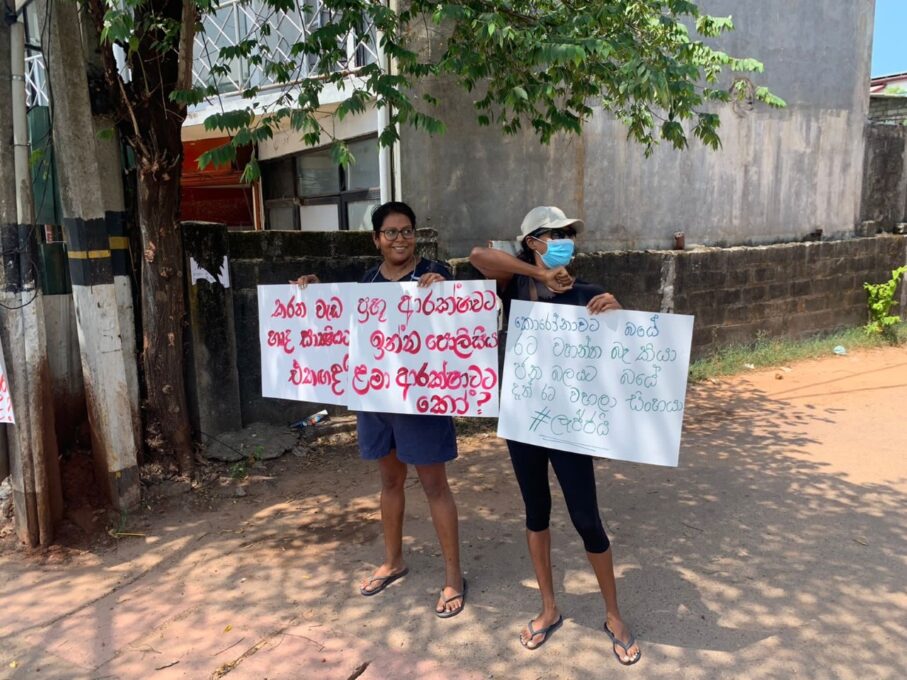 කරන වැඩ
හෘද සාක්ෂියට
එකඟද
ප්‍රභූ ආරක්ෂාවට
ඉන්න පොලිසිය
ළමා ආරක්ෂාවට
කෝ ?
කොරෝනාවට බයේ
රට වහන්න බෑ කියා
ජන බලයට බයේ
දැන් රට වහලා සිංහයා
#ලැජ්ජයි